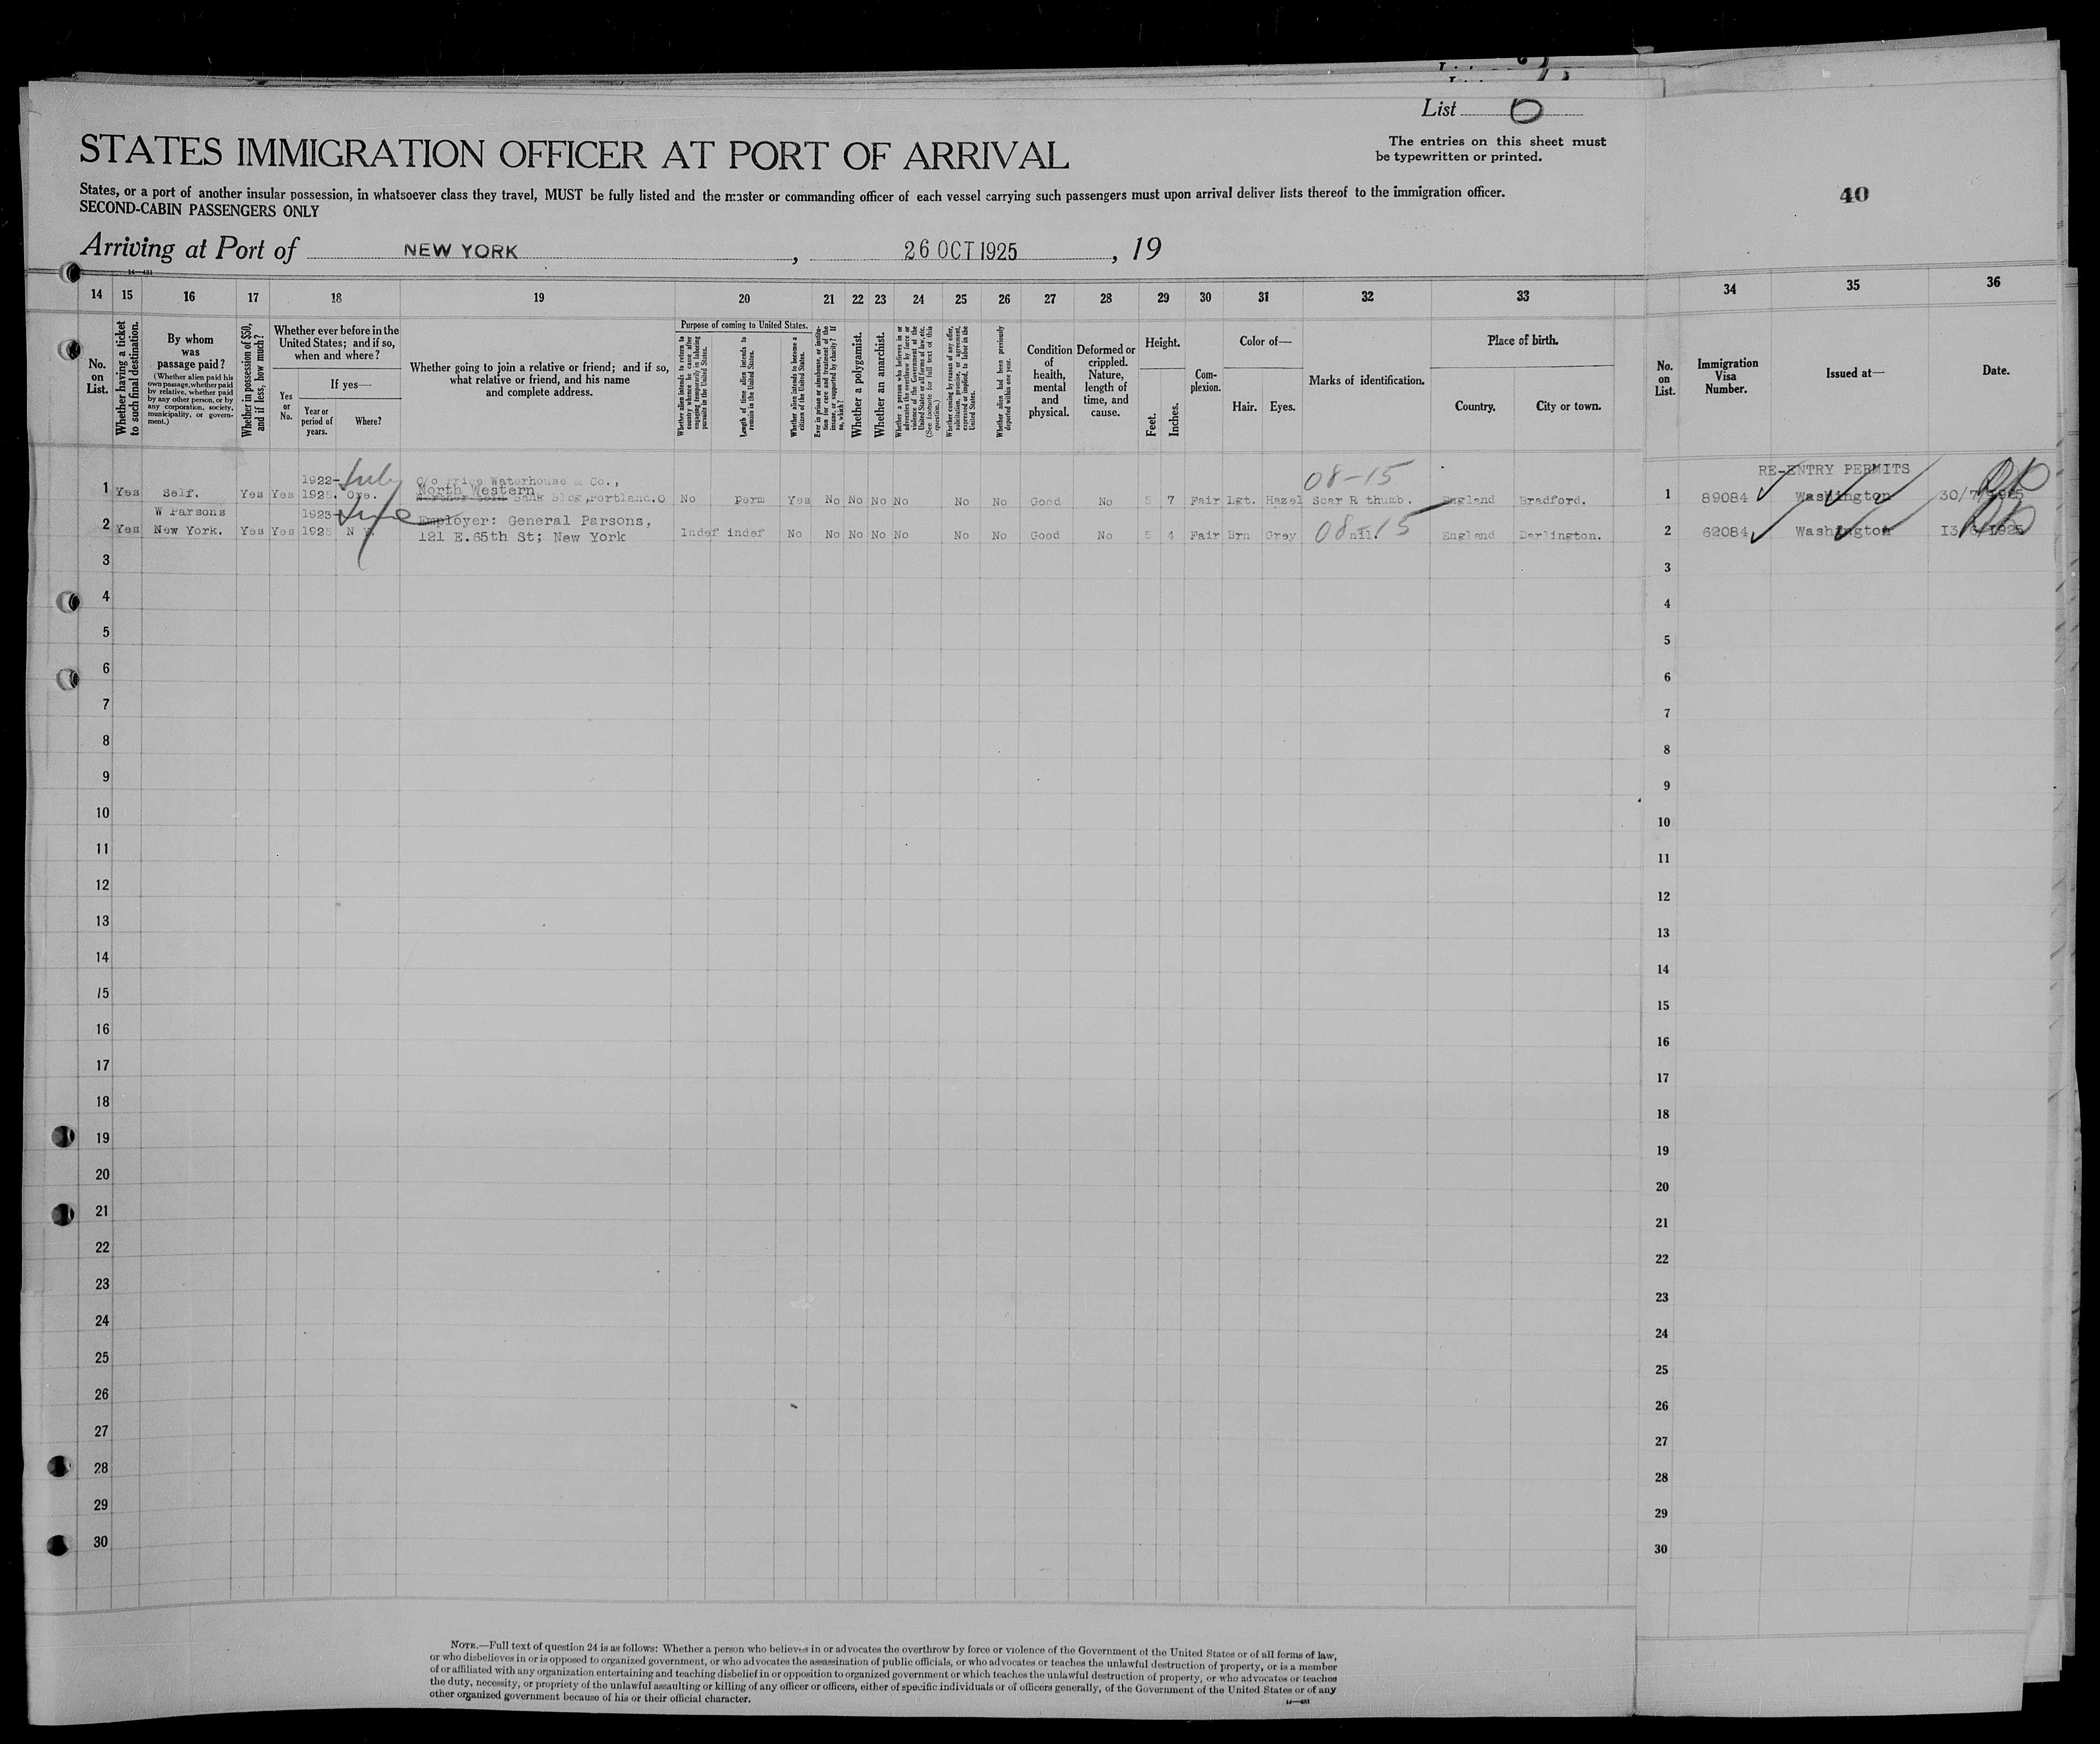 List 6
The entries on this sheet must
be typewritten or printed.
STATES IMMIGRATION OFFICER AT PORT OF ARRIVAL
States, or a port of another insular possession, in whatsoever class they travel, MUST be fully listed and the master or commanding officer of each vessel carrying such passengers must upon arrival deliver lists thereof to the immigration officer.
SECOND-CABIN PASSENGERS ONLY
40
Arriving at Port of NEW YORK, 26 OCT 1925, 19
14—431
14 15 16 17 18 19 20 21 22 23 24 25 26 27 28 29 30 31 32 33 34 35 36
No. on List.
Whether having a ticket to such final destination.
By whom was passage paid?
(Whether alien paid his own passage, whether paid by relative, whether paid by any other person, or by any corporation, society, municipality, or government.)
Whether in possession of $50, and if less, how much?
Whether ever before in the United States; and if so, when and where?
Yes or No.
If yes—
Year or period of years.
Where?
Whether going to join a relative or friend; and if so, what relative or friend, and his name and complete address.
Purpose of coming to United States.
Whether alien intends to return to country whence he came after engaging temporarily in laboring pursuits in the United States.
Length of time alien intends to remain in the United States.
Whether alien intends to become a citizen of the United States.
Ever in prison or almshouse, or institution for care and treatment of the insane, or supported by charity? If so, which?
Whether a polygamist.
Whether an anarchist.
Whether a person who believes in or advocates the overthrow by force or violence of the Government of the United States or all forms of law, etc. (See footnote for full text of this question.)
Whether coming by reason of any offer, solicitation, promise, or agreement, expressed or implied, to labor in the United States.
Whether alien had been previously deported within one year.
Condition of health, mental and physical.
Deformed or crippled. Nature, length of time, and cause.
Height.
Feet.
Inches.
Complexion.
Color of—
Hair.
Eyes.
Marks of identification.
Place of birth.
Country.
City or town.
No. on List.
Immigration Visa Number.
Issued at—
Date.
1922- July C/o Price Waterhouse & Co., 08-15 RE-ENTRY PERMITS
North Western
1 Yes Self. Yes Yes 1925. Ore. Bank Bldg, Portland. O No perm Yes No No No No No No Good No 7 Fair Lgt. Hazel Scar R thumb. England Bradford. 1 89084 Washington 30/7/1925
W Parsons 1923- June Employer: General Parsons,
2 Yes New York. Yes Yes 1925 N Y. 121 E.65th St; New York Indef indef No No No No No No No Good No 5 4 Fair Brn Grey nil. 08-15 England Darlington. 2 62084 Washington 13/6/1925
3 3
4 4
5 5
6 6
7 7
8 8
9 9
10 10
11 11
12 12
13 13
14 14
15 15
16 16
17 17
18 18
19 19
20 20
21 21
22 22
23 23
24 24
25 25
26 26
27 27
28 28
29 29
30 30
NOTE.—Full text of question 24 is as follows: Whether a person who believes in or advocates the overthrow by force or violence of the Government of the United States or of all forms of law,
or who disbelieves in or is opposed to organized government, or who advocates the assassination of public officials, or who advocates or teaches the unlawful destruction of property, or is a member
of or affiliated with any organization entertaining and teaching disbelief in or opposition to organized government or which teaches the unlawful destruction of property, or who advocates or teaches
the duty, necessity, or propriety of the unlawful assaulting or killing of any officer or officers, either of specific individuals or of officers generally, of the Government of the United States or of any
other organized government because of his or their official character.
14—431